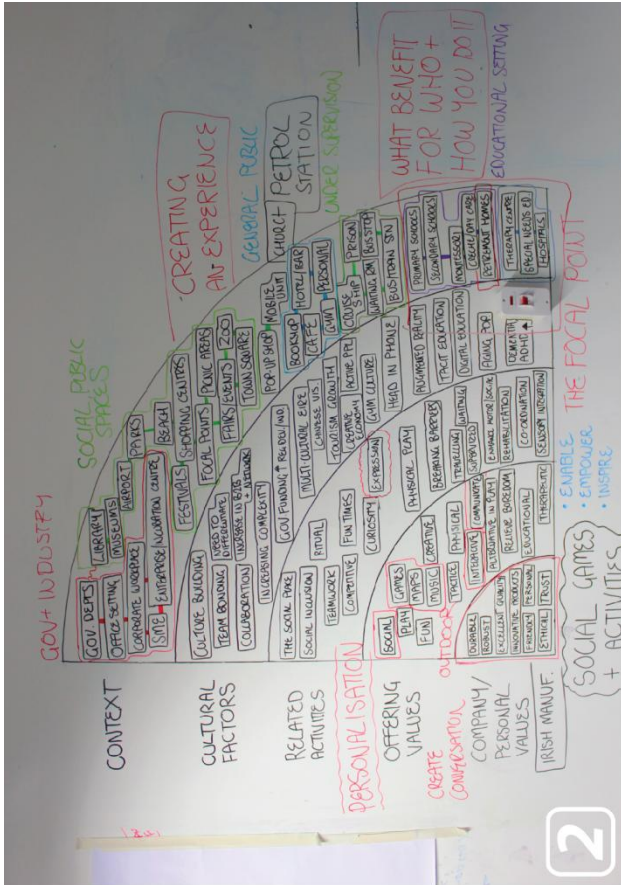 GOV+ INDUSTRY
SOCIAL PUBLIC
SPACES
CREATING
AN EXPERIENCE
GENERAL PUBLIC
CHURCH
PETROL
STATION
UNDER SUPERVISION
WHAT BENEFIT
FOR WHO +
HOW YOU DO IT
EDUCATIONAL SETTING
CONTEXT
GOV DEPTS
OFFICE SETTING
CORPORATE WORKPLACE
SME
ENTERPRISE/INCUBATION CENTRES
LIBRARY
MUSEUMS
AIRPORT
PARKS
BEACH
FESTIVALS
SHOPPING CENTRES
FOCAL POINTS
PICNIC AREAS
FAIRS
EVENTS
ZOO
TOWN SQUARE
POP-UP SHOP
MOBILE
UNIT
BOOKSHOP
HOTEL/BAR
CAFÉ
GYM
PERSONAL
PRISON
WAITING RM
BUS STOP
BUS/TRAIN STN
PRIMARY SCHOOLS
SECONDARY SCHOOLS
MONTESSORI
CRECHE/DAY CARE
RETIREMENT HOMES
THERAPY CENTRE
SPECIAL NEEDS ED
HOSPITALS
CULTURAL
FACTORS
CULTURE BUILDING
TEAM BONDING
NEED TO
DIFFERENTIATE
COLLABORATION
INCREASE IN BIDS
INCREASING COMPLEXITY
GOV FUNDING↑
MULTI-CULTURAL EIRE
CHINESE VIS
TOURISM GROWTH
CREATIVE
ECONOMY
ACTIVE PPL
GYM CULTURE
HEAD IN PHONE
AUGMENTED REALITY
TACIT EDUCATION
DIGITAL EDUCATION
AGING POP
DEMENTIA
ADHD↑
RELATED
ACTIVITIES
THE SOCIAL PLACE
SOCIAL INCLUSION
RITUAL
TEAMWORK
COMPETITIVE
FUN TIMES
CURIOSITY
EXPRESSION
PHYSICAL PLAY
BREAKING BARRIERS
TRAVELLING
WAITING
ENHANCE MOTOR/SOCIAL
REHABILITATION
CO-ORDINATION
SENSORY INTEGRATION
PERSONALISATION
OFFERING
VALUES
SOCIAL
GAMES
PLAY
MAPS
FUN
MUSIC
CREATIVE
OUTDOOR
TACTICE
PHYSICAL
INTERACTIVE
ALTERNATIVE IN PLAY
RELIEVE BOREDOM
EDUCATIONAL
THERAPEUTIC
CREATE
CONVERSATION
COMPANY/
PERSONAL
VALUES
DURABLE
ROBUST
EXCELLENT QUALITY
INNOVATIVE PRODUCTS
FRIENDLY
PERSONAL
ETHICAL
TRUST
IRISH MANUF.
THE FOCAL POINT
• ENABLE
• EMPOWER
• INSPIRE
SOCIAL GAMES
+ ACTIVITIES
2